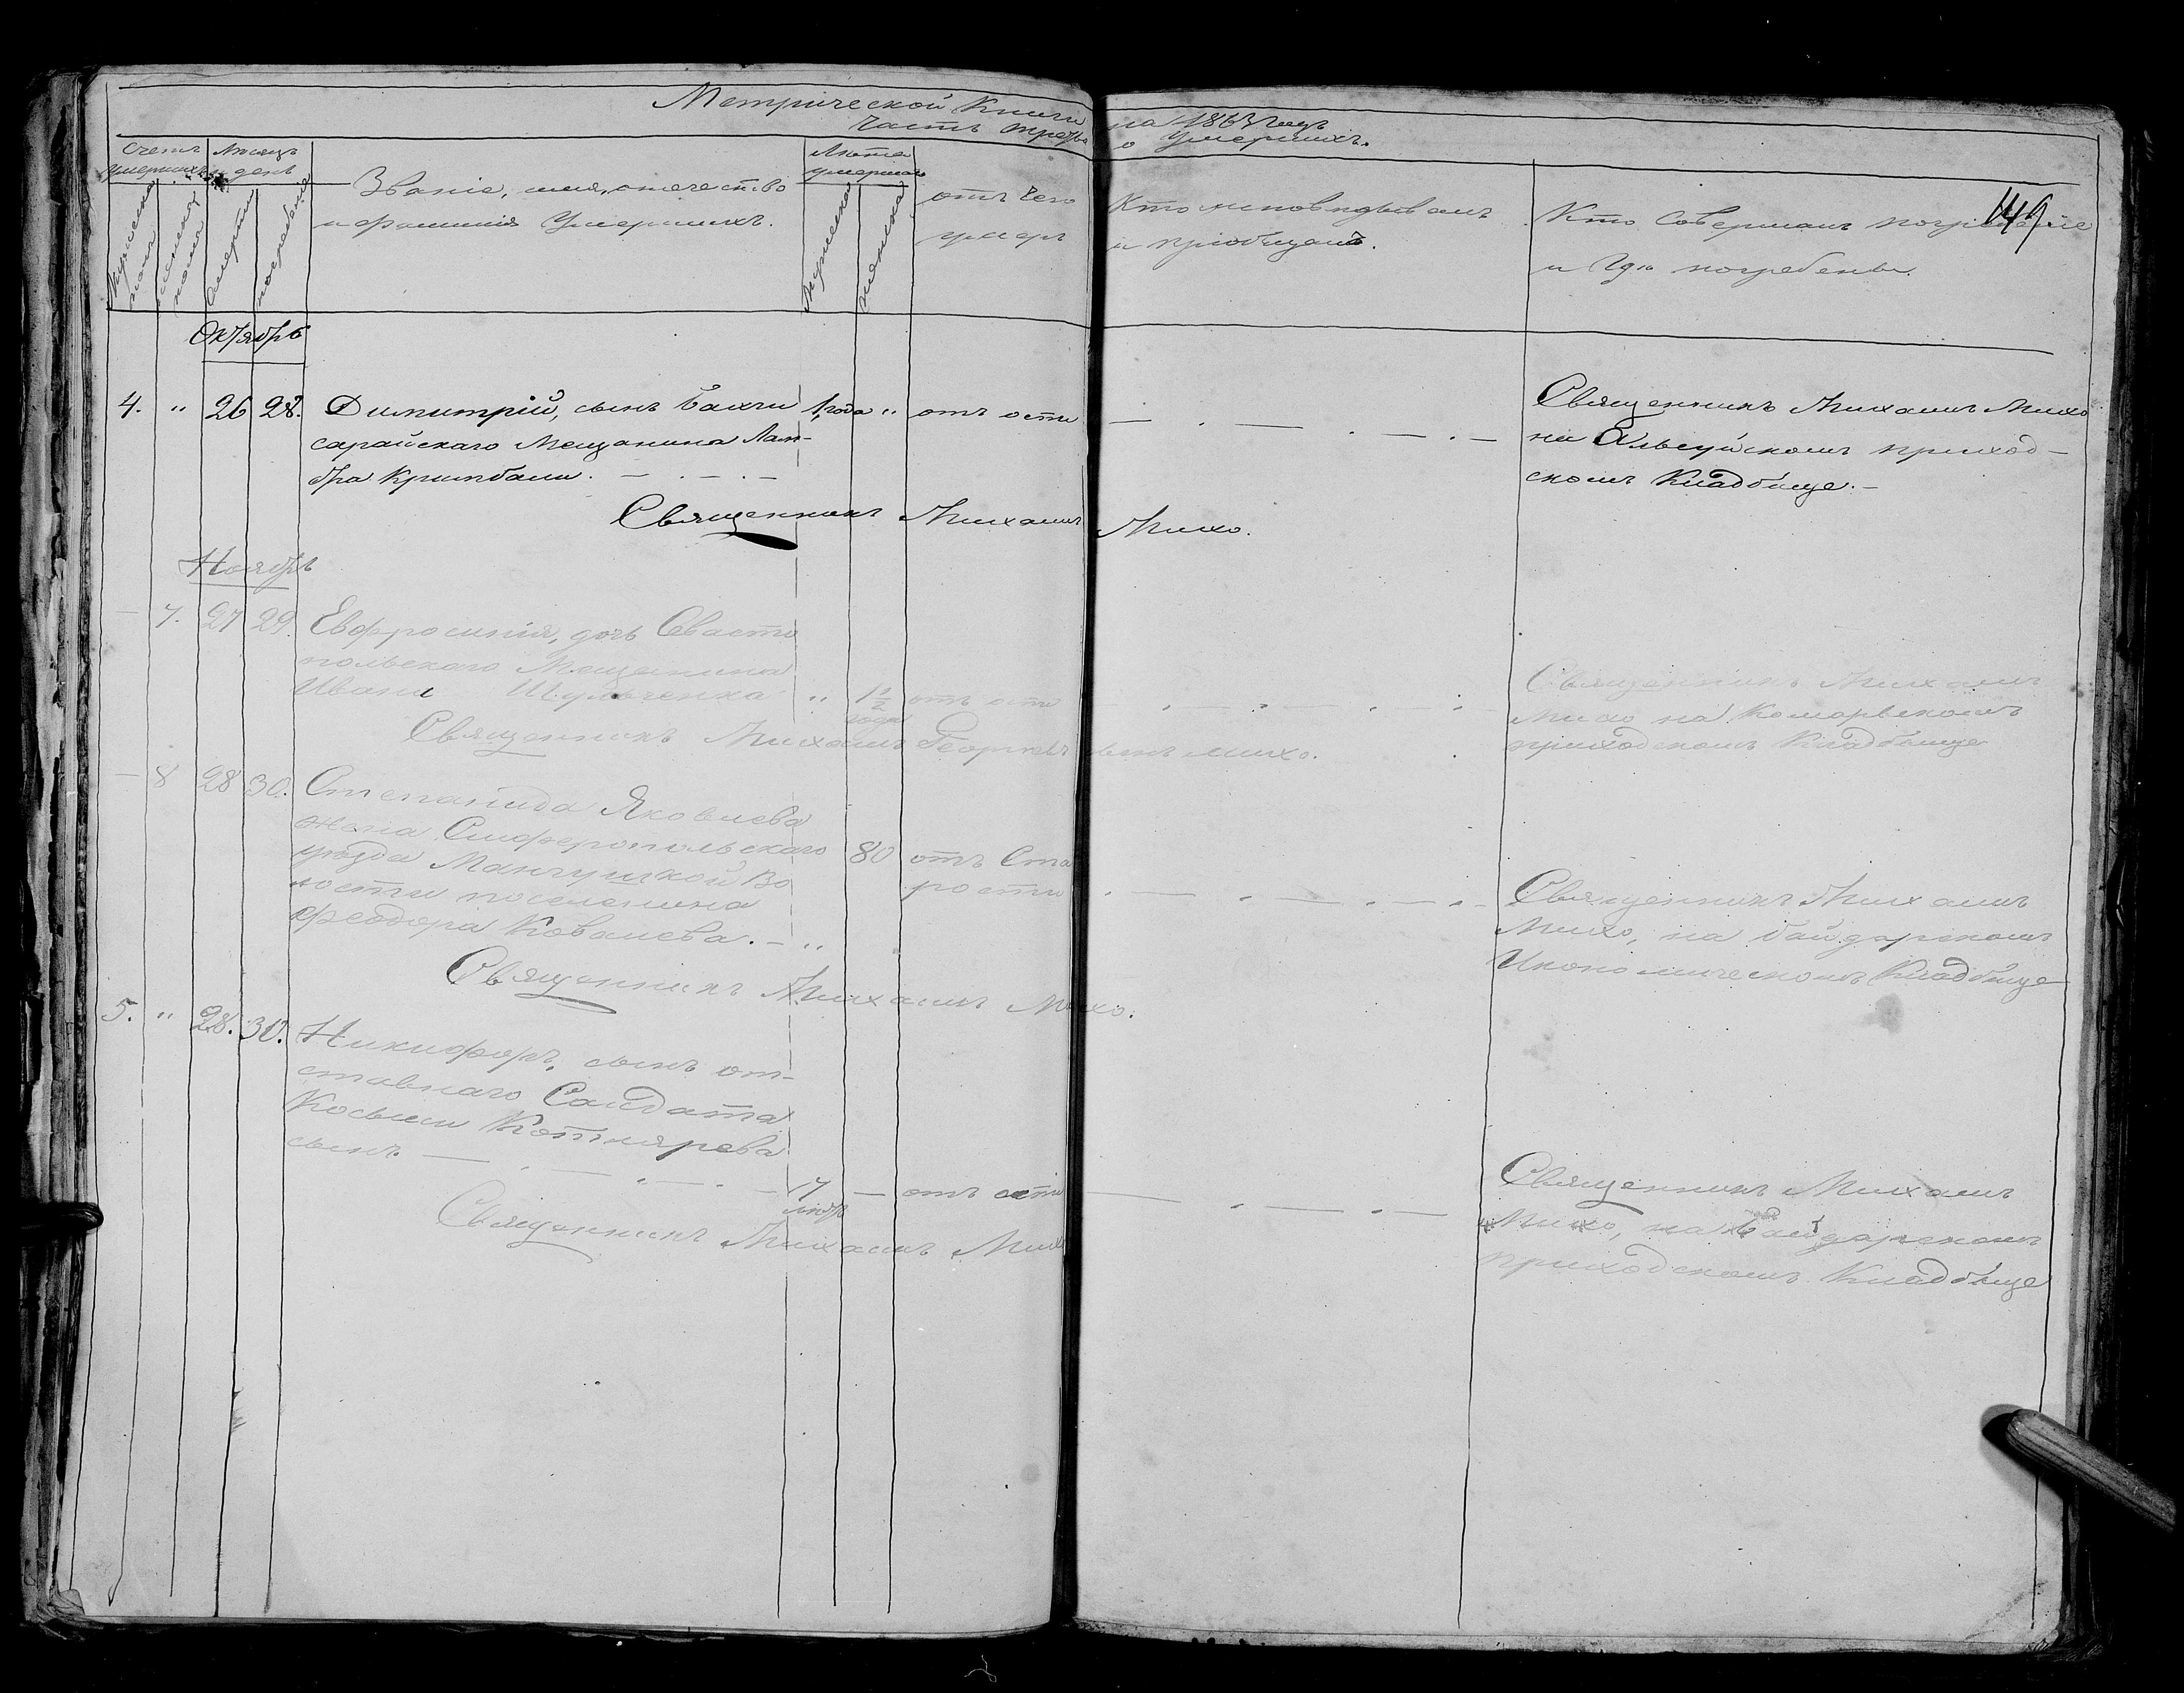 Метрической Книги на 1863 годъ
часть третья о Умершихъ.
149
Счетъ Умершихъ
Мѣсяцъ и день
Званіе, имя, отечество
и фамилія Умершихъ.
Лѣта умершаго
отъ чего
умеръ
Кто исповѣдывалъ
и пріобщалъ.
Кто Совершалъ погребеніе
и Гдѣ погребены.
мужеска пола
женска пола
Смерти
погребенія
мужеска
женска
Октябрь
4. " 26 28. Димитрій, сынъ Бахчи 1 года " отъ оспы
сарайскаго Мещанина Лам-
бра
Священникъ Михаилъ Михо
на приход-
скомъ Кладбище.-
Священникъ Михаилъ Михо.
Ноябрь
— 7. 27 29. Евфросинія, дочь Севасто
польскаго Мещанина
Ивана Шульченка " 1½ года отъ оспы
Священникъ Михаилъ
Михо на Комарскомъ
приходскомъ Кладбище
Священникъ Михаилъ Георгіевъ сынъ Михо.
— 8 28 30. Степанида Яковлева
жена Симферопольскаго 80 отъ Ста
уѣзда Мангушской Во рости
лости поселянина
Феодора Ковалева. — "
Священникъ Михаилъ
Михо, на Байдарскомъ
Икономическомъ Кладбище
Священникъ Михаилъ Михо.
5. " 28. 30. Никифоръ, сынъ от-
ставнаго Салдата
Космы Котлярева
сынъ — 7 лѣтъ — отъ оспы
Священникъ Михаилъ
Михо, на Байдарскомъ
приходскомъ Кладбище
Священникъ Михаилъ Михо